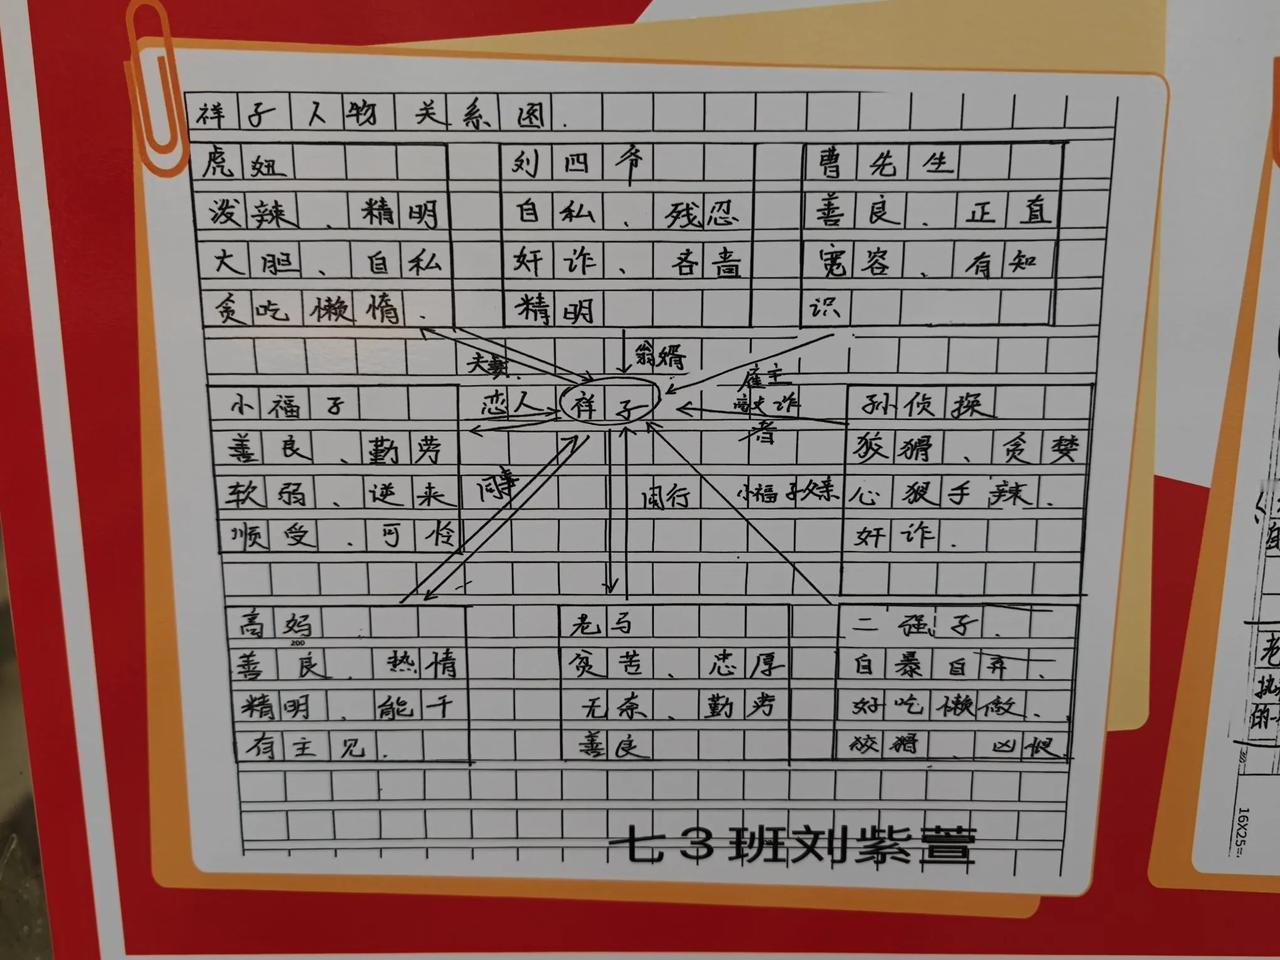 祥子人物关系图.
虎妞
泼辣、精明
大胆、自私
贪吃懒惰.
刘四爷
自私、残忍
奸诈、吝啬
精明
曹先生
善良、正直
宽容、有知
识
夫妻.
翁婿
雇主
小福子
善良、勤劳
软弱、逆来
顺受、可怜
恋人
祥子
诈
者
孙侦探
狡猾、贪婪
心狠手辣、
奸诈.
同事
同行
小福子父亲
高妈
200
善良、热情
精明、能干
有主见.
老马
贫苦、忠厚
无奈、勤劳
善良
二强子.
自暴自弃、
好吃懒做、
狡猾、凶狠.
七3班刘紫萱
16X25=